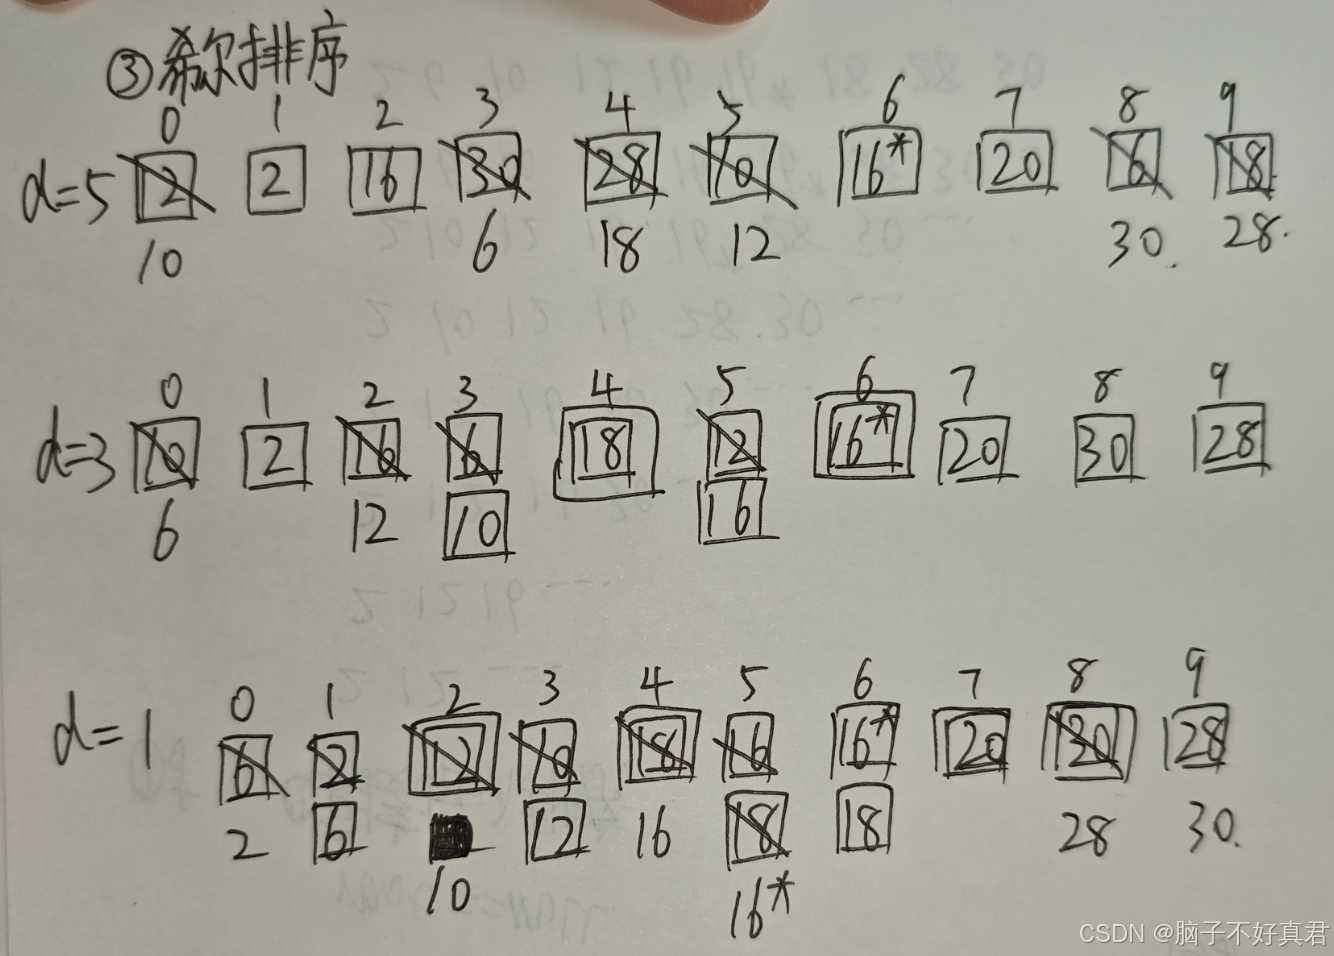 ③希尔排序
0 1 2 3 4 5 6 7 8 9
d=5 12 2 16 30 28 10 16* 20 6 18
10 6 18 12 30. 28.
0 1 2 3 4 5 6 7 8 9
d=3 10 2 16 6 18 12 16* 20 30 28
6 12 10 16
0 1 2 3 4 5 6 7 8 9
d=1 6 2 12 10 18 16 16* 20 30 28
2 6 12 16 18 18 28 30.
10 16*
CSDN @脑子不好真君